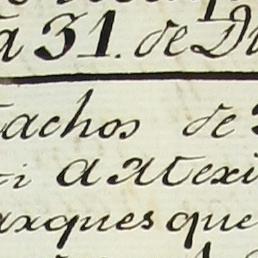 a 31. de Di
tachos de
i a Mexi
arques que